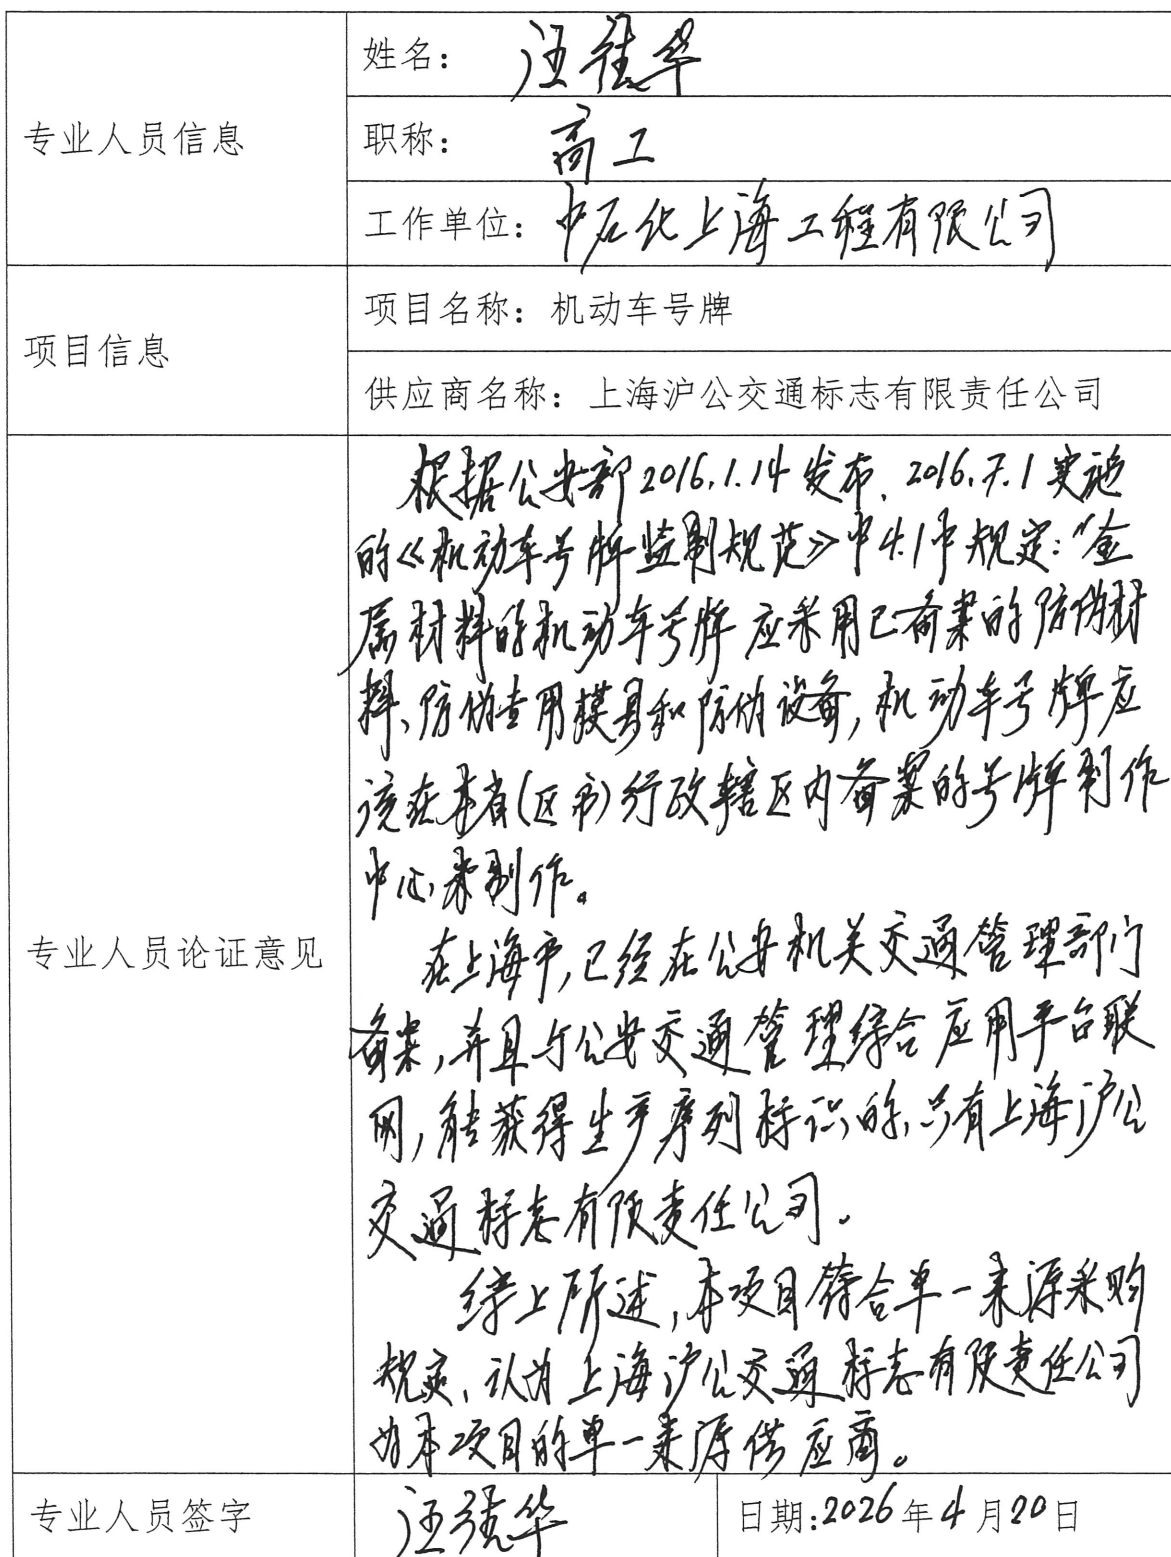 专业人员信息
姓名：汪佳华
职称：高工
工作单位：中石化上海工程有限公司
项目信息
项目名称：机动车号牌
供应商名称：上海沪公交通标志有限责任公司
专业人员论证意见
根据公安部2016.1.14发布、2016.7.1实施
的《机动车号牌监制规范》中4.1中规定：“金
属材料的机动车号牌应采用已备案的防伪材
料、防伪专用模具和防伪设备，机动车号牌应
该在本省(区市)行政辖区内备案的号牌制作
中心来制作。
在上海市，已经在公安机关交通管理部门
备案，并且与公安交通管理综合应用平台联
网，能获得生产序列标识的，只有上海沪公
交通标志有限责任公司。
综上所述，本项目符合单一来源采购
规定、认为上海沪公交通标志有限责任公司
为本项目的单一来源供应商。
专业人员签字
汪佳华
日期:2026年4月20日